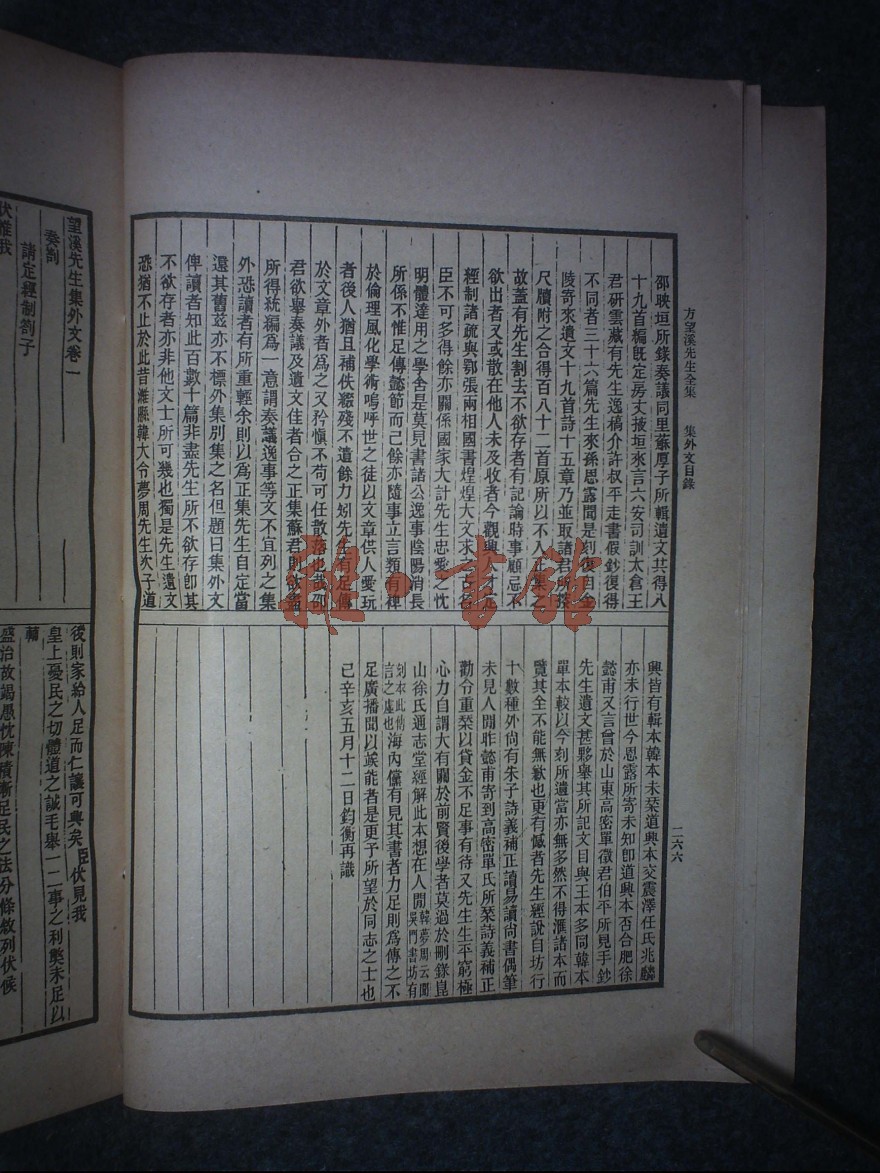 方望溪先生全集　集外文目錄
二六六
邵映垣所錄奏議同里蘇厚子所輯遺文共得八
十九首編既定房丈掖垣來言六安司訓太倉王
君研雲藏有先生逸稿介許叔平走書假鈔復得
不同者三十六篇先生來孫恩露聞是刻復自金
陵寄來遺文十九首詩十五章乃並取諸君所
尺牘附之合得百八十二首原所以不入正集之
故蓋有先生割去不欲存者有記論時事顧忌不
欲出者又或散在他人未及收者今觀
經制諸疏與鄂張兩相國書煌煌大文求
臣不可多得餘亦關係國家大計先生忠愛之忱
明體達用之學舍是莫見書諸公逸事陰陽消長
所係不惟足傳懿節而已餘亦隨事立言類有裨
於倫理風化學術嗚呼世之徒以文章供人愛玩
者後人猶且補佚綴殘不遺餘力矧先生有足傳
於文章外者為之又矜慎不苟可任散落也哉邵
君欲舉奏議及遺文佳者合之正集蘇君則欲盡
所得統編為一意謂奏議逸事等文不宜列之集
外恐讀者有所重輕余則以為正集先生自定當
還其舊茲亦不標外集別集之名但題曰集外文
俾讀者知此百數十篇非盡先生所不欲存卽其
不欲存者亦非他文士所可幾也獨是先生遺文
恐猶不止於此昔濰縣韓大令夢周先生次子道
興皆有輯本韓本未栞道興本交震澤任氏兆麟
亦未行世今恩露所寄未知卽道興本否合肥徐
懿甫又言曾於山東高密單徵君伯平所見手鈔
先生遺文甚夥舉其所記文目與王本多同韓本
單本較以今刻所遺當亦無多然不得滙諸本而
覽其全不能無歉也更有憾者先生經說自坊行
十數種外尚有朱子詩義補正讀易讀尚書偶筆
未見人間昨懿甫寄到高密單氏所栞詩義補正
勸令重栞以貸金不足事有待又先生生平窮極
心力自謂大有關於前賢後學者莫過於刪錄崑
山徐氏通志堂經解此本想在人間韓夢周云聞吳門書坊有
刻本此傳言之虛也海內儻有見其書者力足則為傳之不
足廣播聞以竢能者是更予所望於同志之士也
己辛亥五月十二日鈞衡再識
望溪先生集外文卷一
奏劄
請定經制劄子
伏惟我
後則家給人足而仁讓可興矣臣伏見我
皇上憂民之切體道之誠毛舉一二事之利獘未足以
輔
盛治故竭愚忱陳積漸足民之法分條敘列伏候
雜·書館